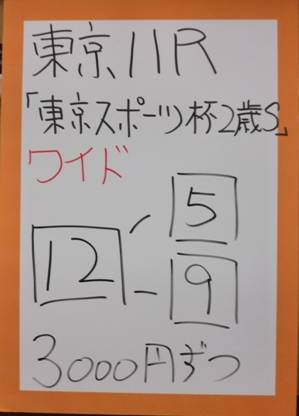 東京11R
「東京スポーツ杯2歳S」
ワイド
12
5
9
3000円ずつ